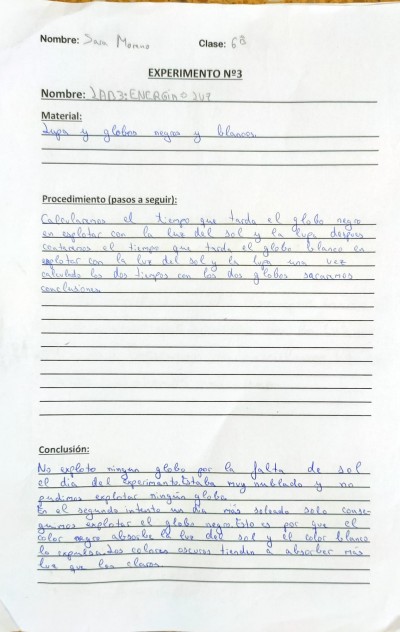 Nombre: Sara Moreno Clase: 6ºB
EXPERIMENTO Nº3
Nombre: LAB3: ENERGÍA LUZ
Material:
Lupa y globos negros y blancos.
Procedimiento (pasos a seguir):
Calcularemos el tiempo que tarda el globo negro
en explotar con la luz del sol y la lupa despues
contaremos el tiempo que tarda el globo blanco en
explotar con la luz del sol y la lupa una vez
calculado los dos tiempos con los dos globos sacaremos
conclusiones
Conclusión:
No exploto ningun globo por la falta de sol
el dia del experimento. Estaba muy nublado y no
pudimos explotar ningún globo.
En el segundo intento un dia más soleado solo conse-
guimos explotar el globo negro. Esto es por que el
color negro absorbe la luz del sol y el color blanco
la expulsa. Los colores oscuros tienden a absorber más
luz que los claros.